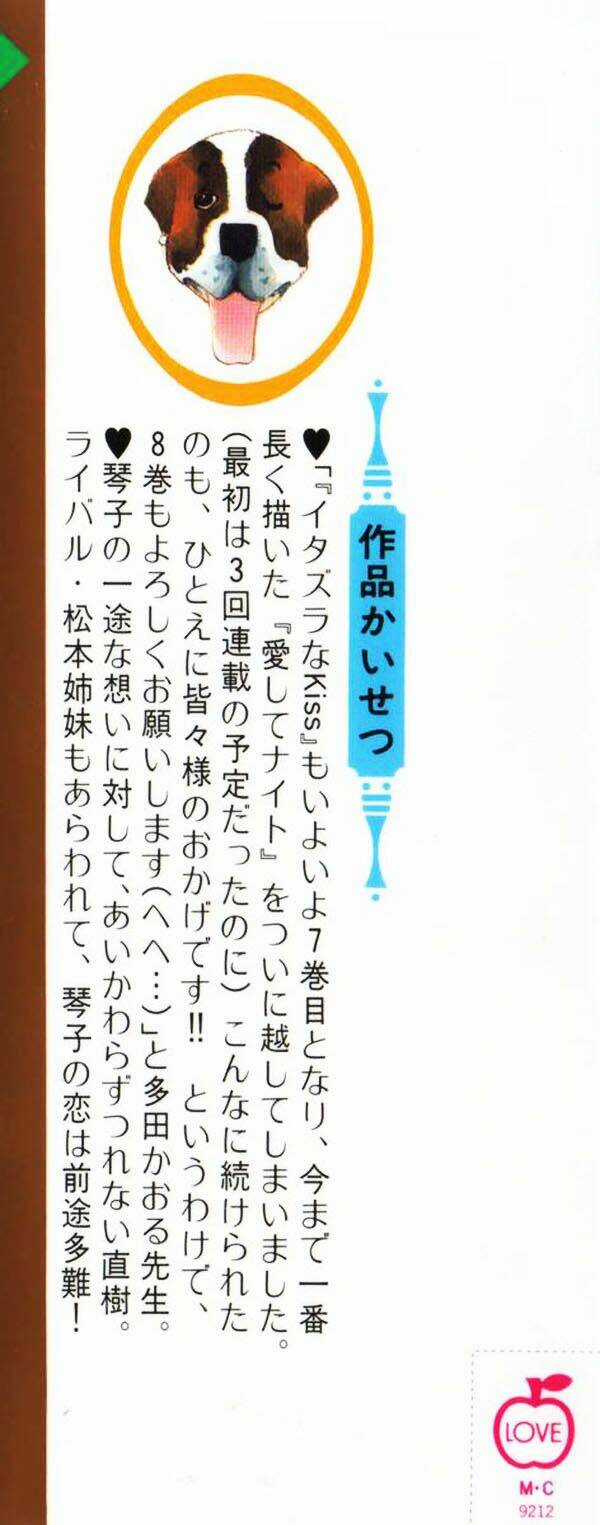 作品かいせつ
♥「『イタズラなKiss』もいよいよ7巻目となり、今まで一番
長く描いた『愛してナイト』をついに越してしまいました。
(最初は3回連載の予定だったのに)こんなに続けられた
のも、ひとえに皆々様のおかげです!! というわけで、
8巻もよろしくお願いします(へへ…)」と多田かおる先生。
♥琴子の一途な想いに対して、あいかわらずつれない直樹。
ライバル・松本姉妹もあらわれて、琴子の恋は前途多難!
LOVE
M・C
9212